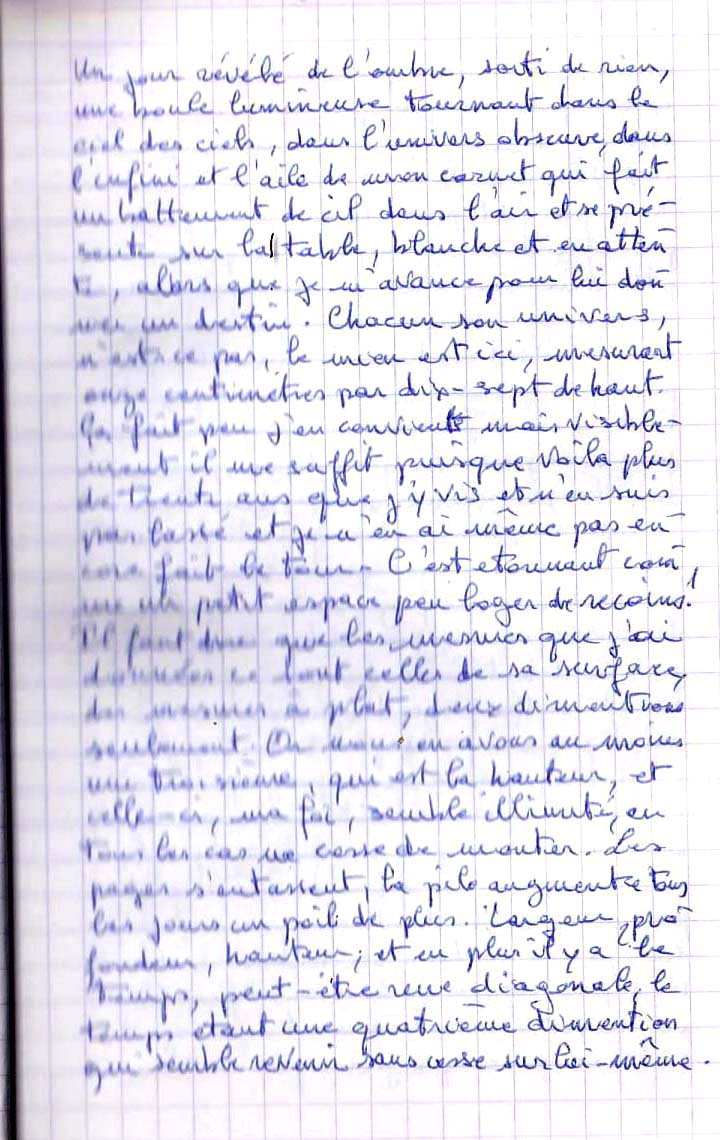 Un jour révélé de l'ombre, sorti de rien,
une boule lumineuse tournant dans le
ciel des ciels, dans l'univers obscure, dans
l'infini et l'aile de mon carnet qui fait
un battement de cil dans l'air et se pré-
sente sur la table, blanche et en atten
te, alors que je m'avance pour lui don
ner un destin. Chacun son univers,
n'est-ce pas, le mien est ici, mesurant
onze centimètres par dix-sept de haut.
Ça fait peu j'en convient mais visible-
ment il me suffit puisque voilà plus
de trente ans que j'y vis et n'en suis
pas lassé et je n'en ai même pas en
core fait le tour. C'est etonnant com
me un petit espace peu loger de recoins!
Il faut dire que les mesures que j'ai
données ce sont celles de sa surface,
des mesures à plat, deux dimentions
seulement. Or nous en avons au moins
une troisième, qui est la hauteur, et
celle-ci, ma foi, semble illimité, en
tous les cas ne cesse de monter. Les
pages s'entassent, la pile augmente tous
les jours un poil de plus. Largeur, pro
fondeur, hauteur; et en plus il y a le
temps, peut-être une diagonale, le
temps étant une quatrième dimention
qui semble revenir sans cesse sur lui-même.